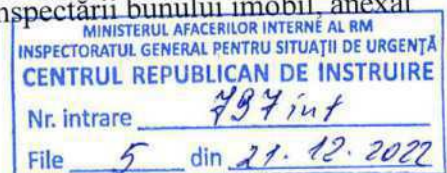 nspectării bunului imobil, anexat
MINISTERUL AFACERILOR INTERNE AL RM
INSPECTORATUL GENERAL PENTRU SITUAȚII DE URGENȚĂ
CENTRUL REPUBLICAN DE INSTRUIRE
Nr. intrare 797 int
File 5 din 21.12.2022